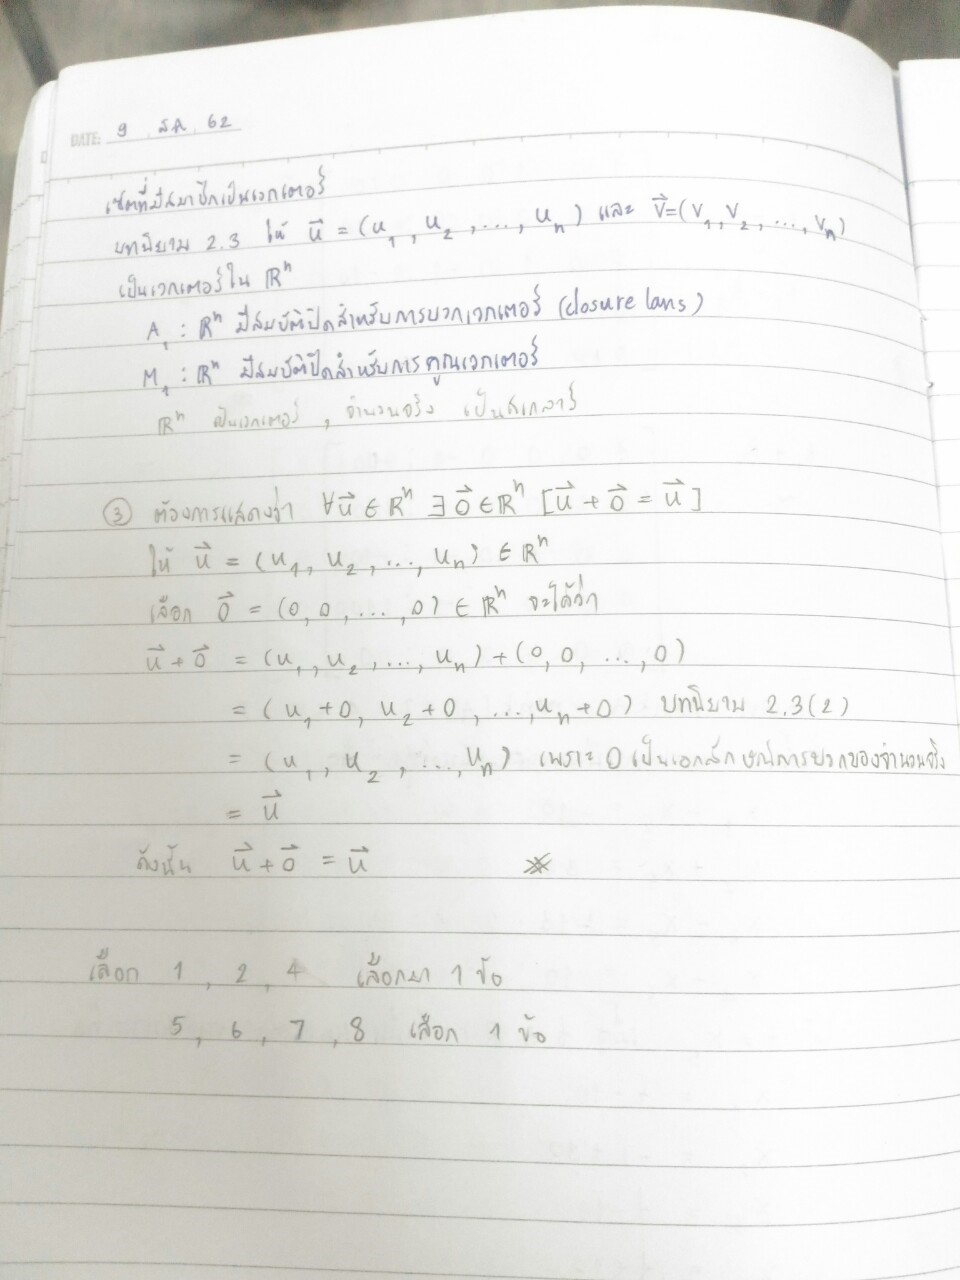 DATE: 9 ส.ค. 62
เซตที่มีสมาชิกเป็นเวกเตอร์
บทนิยาม 2.3 ให้ u⃗ = (u₁, u₂, ..., uₙ) และ v⃗=(v₁, v₂, ..., vₙ)
เป็นเวกเตอร์ใน ℝⁿ
A₁ : ℝⁿ มีสมบัติปิดสำหรับการบวกเวกเตอร์ (closure laws)
M₁ : ℝⁿ มีสมบัติปิดสำหรับการคูณเวกเตอร์
ℝⁿ เป็นเวกเตอร์ , จำนวนจริง เป็นสเกลาร์
③ ต้องการแสดงว่า ∀u⃗ ∈ ℝⁿ ∃0⃗ ∈ ℝⁿ [u⃗ + 0⃗ = u⃗]
ให้ u⃗ = (u₁, u₂, ..., uₙ) ∈ ℝⁿ
เลือก 0⃗ = (0, 0, ..., 0) ∈ ℝⁿ จะได้ว่า
u⃗ + 0⃗ = (u₁, u₂, ..., uₙ) + (0, 0, ..., 0)
= (u₁+0, u₂+0, ..., uₙ+0) บทนิยาม 2.3(2)
= (u₁, u₂, ..., uₙ) เพราะ 0 เป็นเอกลักษณ์การบวกของจำนวนจริง
= u⃗
ดังนั้น u⃗ + 0⃗ = u⃗ ※
เลือก 1, 2, 4 เลือกมา 1 ข้อ
5, 6, 7, 8 เลือก 1 ข้อ